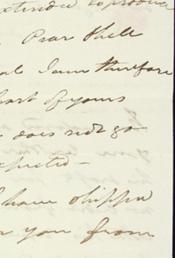 extended to produce
Pear Shell
I am therefore
part of yours
does not go
expected –
I have shipped
you from